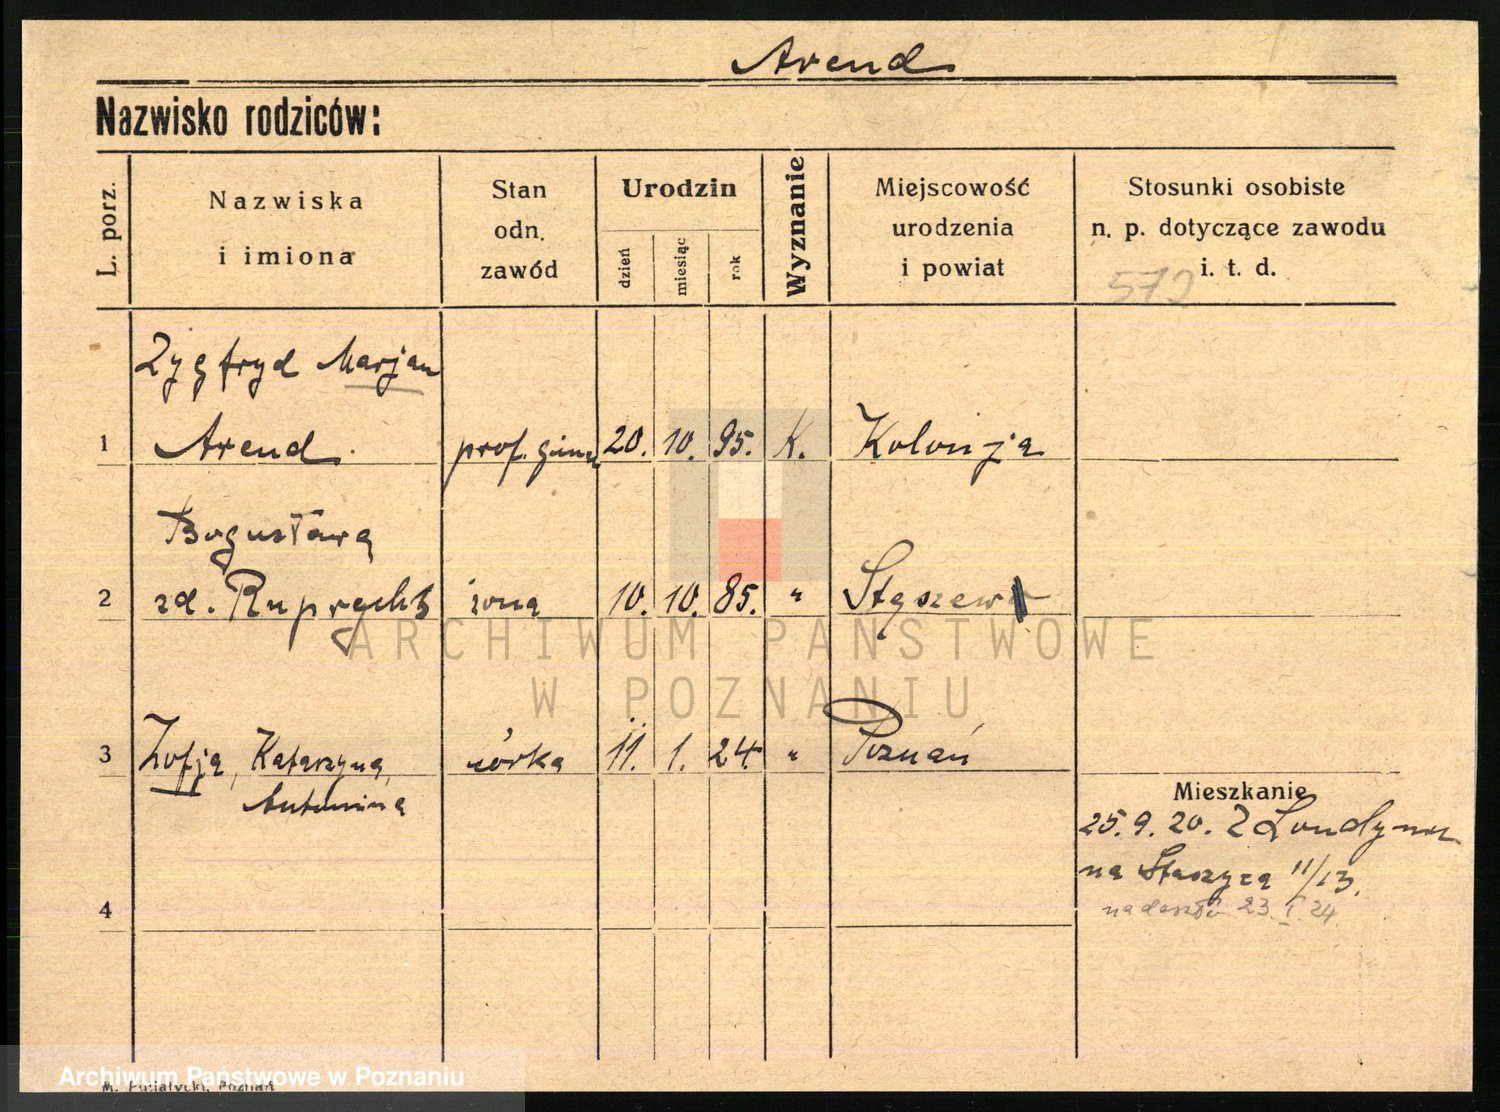 Arend
Nazwisko rodziców:
L. porz.
Nazwiska
i imiona
Stan
odn.
zawód
Urodzin
dzień
miesiąc
rok
Wyznanie
Miejscowość
urodzenia
i powiat
Stosunki osobiste
n. p. dotyczące zawodu
i. t. d.
572
Zygfryd Marjan
1 Arend prof. gimn 20. 10. 95. K. Kolonja
Bogusława
2 zd. Ruprecht żona 10. 10. 85. " Stęszew
3 Zofja, Katarzyna, córka 11. 1. 24. " Poznań
Antonina
Mieszkanie
25. 9. 20. Z Londynu
na Staszyca 11/13.
nadeszło 23. I 24.
4
ARCHIWUM PAŃSTWOWE
W POZNANIU
Archiwum Państwowe w Poznaniu
M. Putiatycki, Poznań